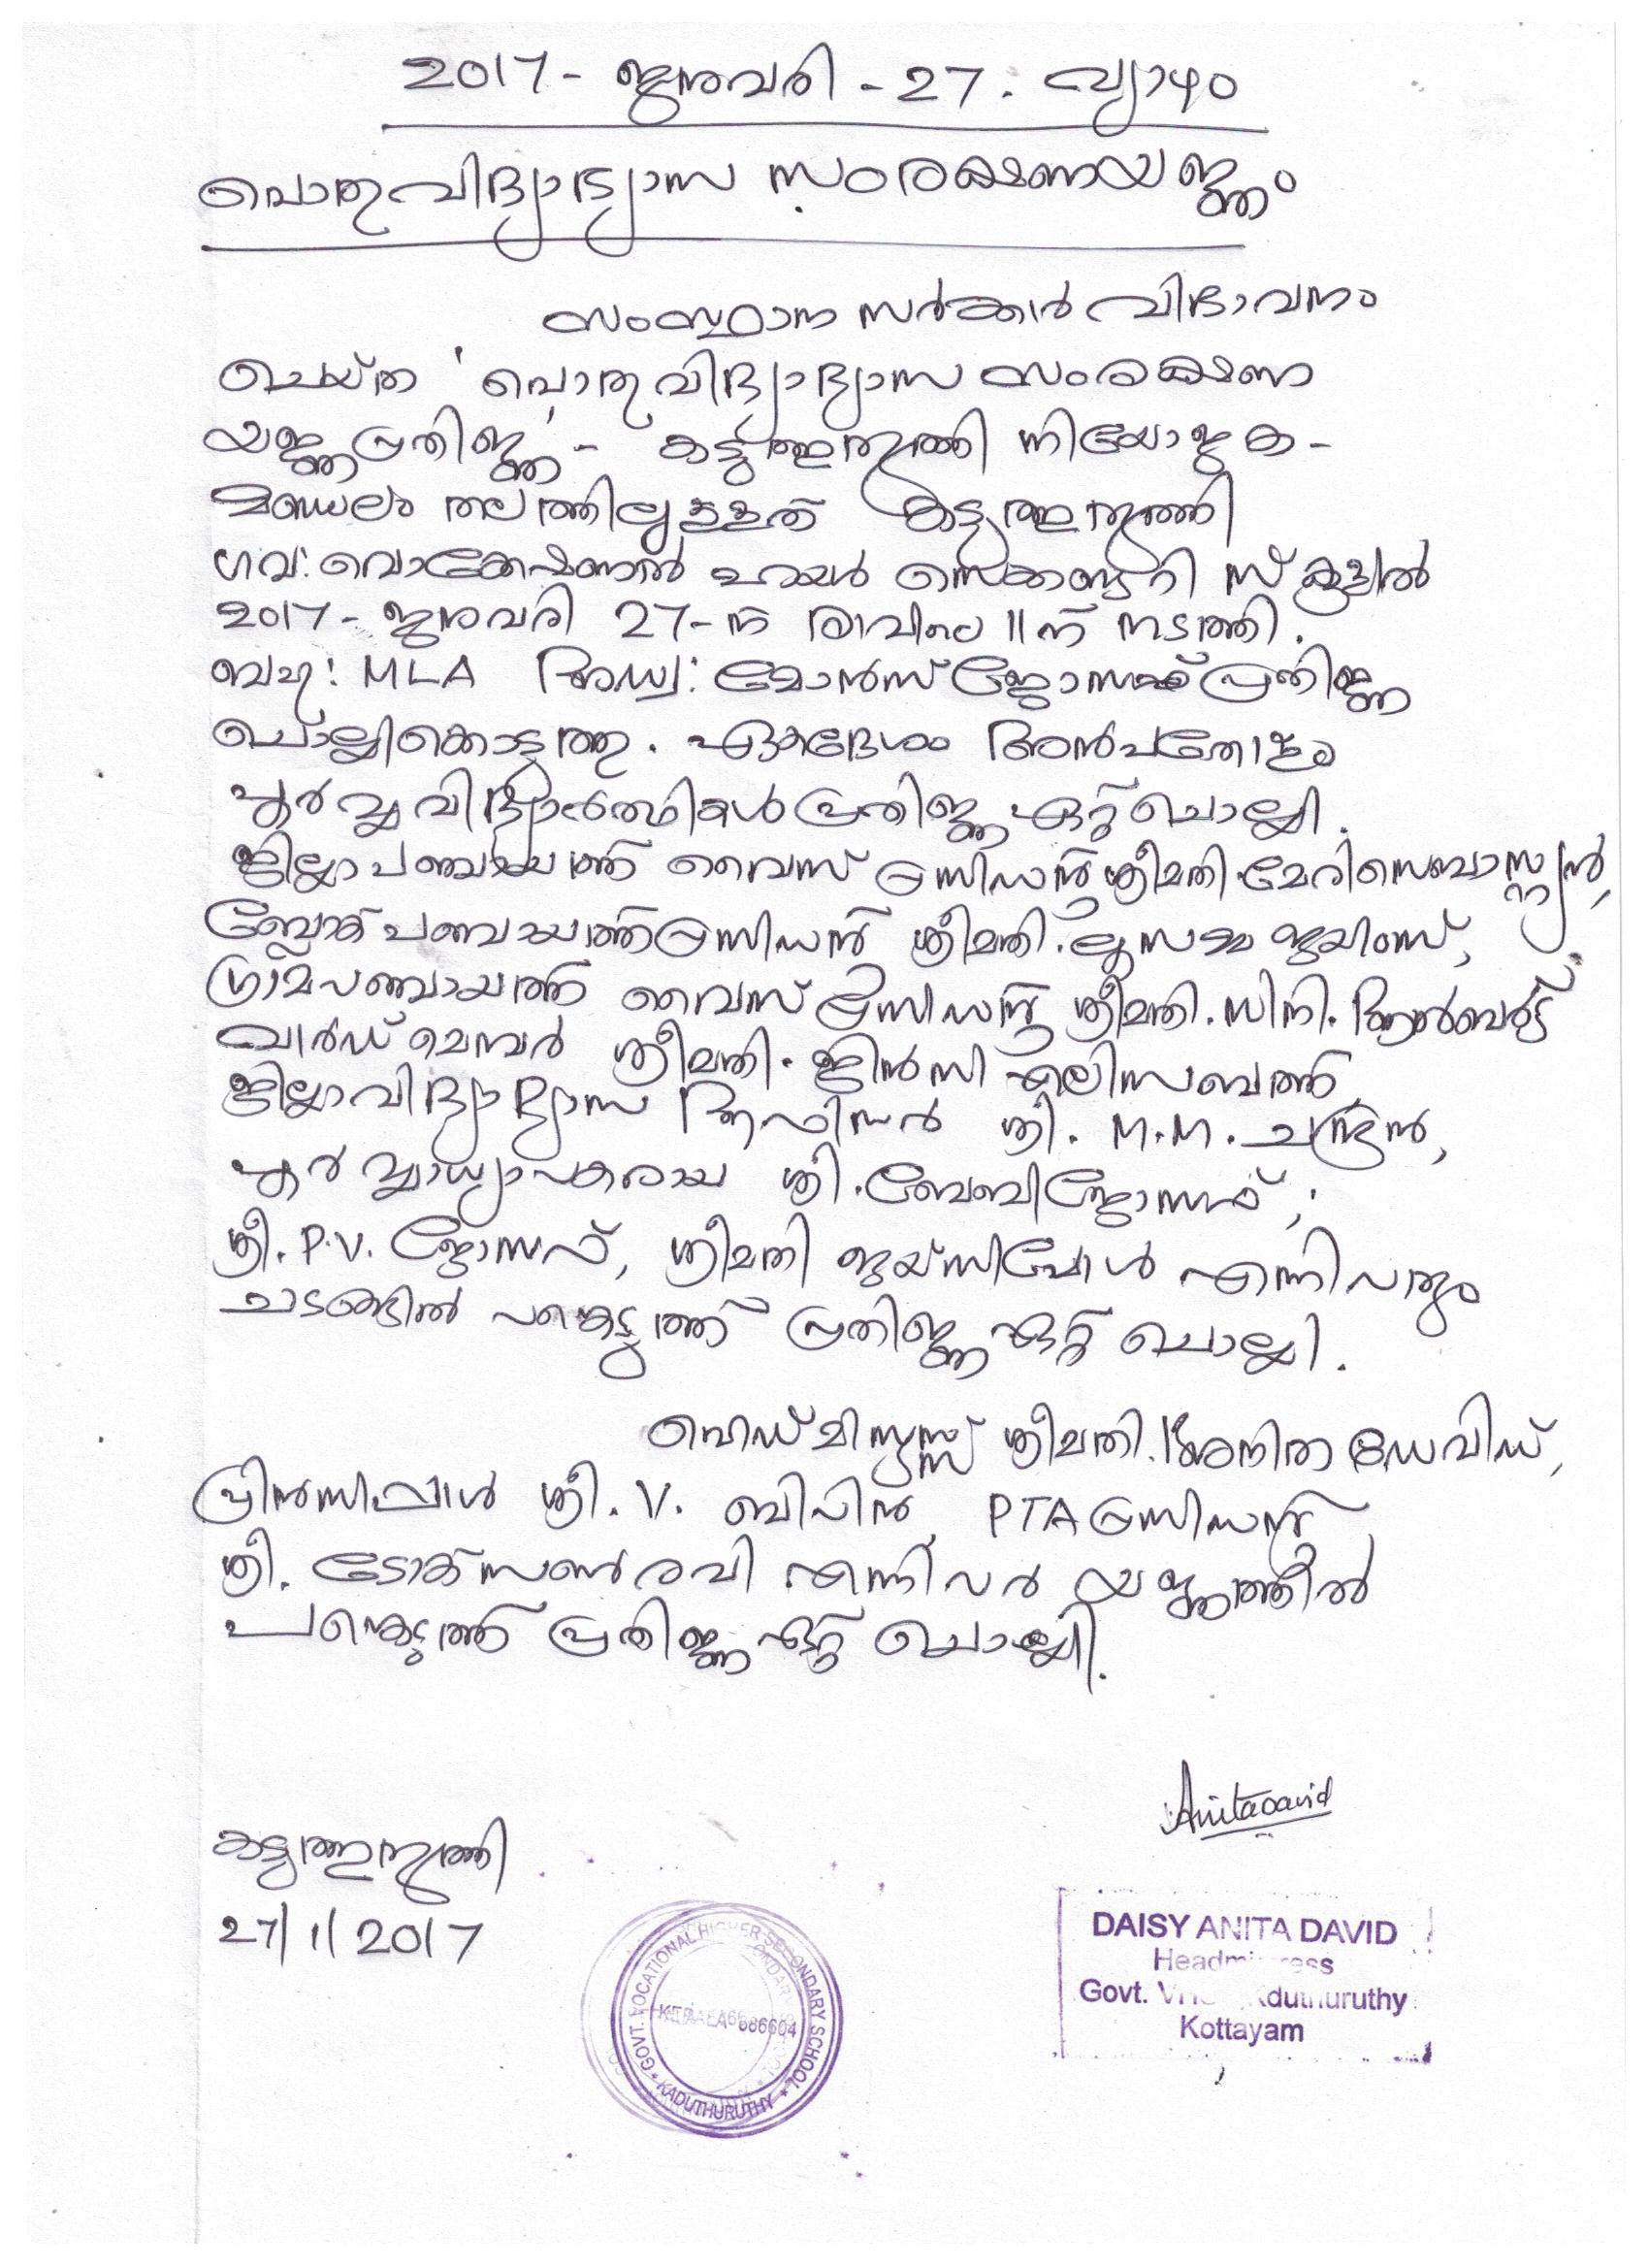 2017 - ജനുവരി - 27. വ്യാഴം
പൊതുവിദ്യാഭ്യാസ സംരക്ഷണയജ്ഞം
സംസ്ഥാന സർക്കാർ വിഭാവനം
ചെയ്ത 'പൊതുവിദ്യാഭ്യാസ സംരക്ഷണ
യജ്ഞപ്രതിജ്ഞ' - കടുത്തുരുത്തി നിയോജക -
മണ്ഡലം തലത്തിലുള്ളത് കടുത്തുരുത്തി
ഗവ: വൊക്കേഷണൽ ഹയർ സെക്കണ്ടറി സ്കൂളിൽ
2017 - ജനുവരി 27-ന് രാവിലെ 11ന് നടത്തി.
ബഹു: MLA അഡ്വ: മോൻസ് ജോസഫ് പ്രതിജ്ഞ
ചൊല്ലികൊടുത്തു. ഏകദേശം അൻപതോളം
പൂർവ്വവിദ്യാർത്ഥികൾ പ്രതിജ്ഞ ഏറ്റ് ചൊല്ലി.
ജില്ലാപഞ്ചായത്ത് വൈസ് പ്രസിഡന്റ് ശ്രീമതി. മേരി സെബാസ്റ്റ്യൻ,
ബ്ലോക്ക് പഞ്ചായത്ത് പ്രസിഡന്റ് ശ്രീമതി. ലൂസമ്മ ജയിംസ്,
ഗ്രാമപഞ്ചായത്ത് വൈസ് പ്രസിഡന്റ് ശ്രീമതി. സിനി. ആൽബർട്ട്
വാർഡ് മെമ്പർ ശ്രീമതി. ജിൻസി എലിസബത്ത്,
ജില്ലാവിദ്യാഭ്യാസ ആഫീസർ ശ്രീ. M.M. ചന്ദ്രൻ,
പൂർവ്വാധ്യാപകരായ ശ്രീ. ബേബി ജോസഫ്,
ശ്രീ. P.V. ജോസഫ്, ശ്രീമതി ജയ്സിപോൾ എന്നിവരും
ചടങ്ങിൽ പങ്കെടുത്ത് പ്രതിജ്ഞ ഏറ്റ് ചൊല്ലി.
ഹെഡ്മിസ്ട്രസ്സ് ശ്രീമതി. അനിത ഡേവിഡ്,
പ്രിൻസിപ്പാൾ ശ്രീ. V. ബിപിൻ, PTA പ്രസിഡന്റ്
ശ്രീ. ടോക്സൺ രവി എന്നിവർ യജ്ഞത്തിൽ
പങ്കെടുത്ത് പ്രതിജ്ഞ ഏറ്റ് ചൊല്ലി.
Anita David
കടുത്തുരുത്തി
27/1/2017
GOVT. VOCATIONAL HIGHER SECONDARY SCHOOL
KADUTHURUTHY
686604
DAISY ANITA DAVID
Headmistress
Govt. Kduthuruthy
Kottayam